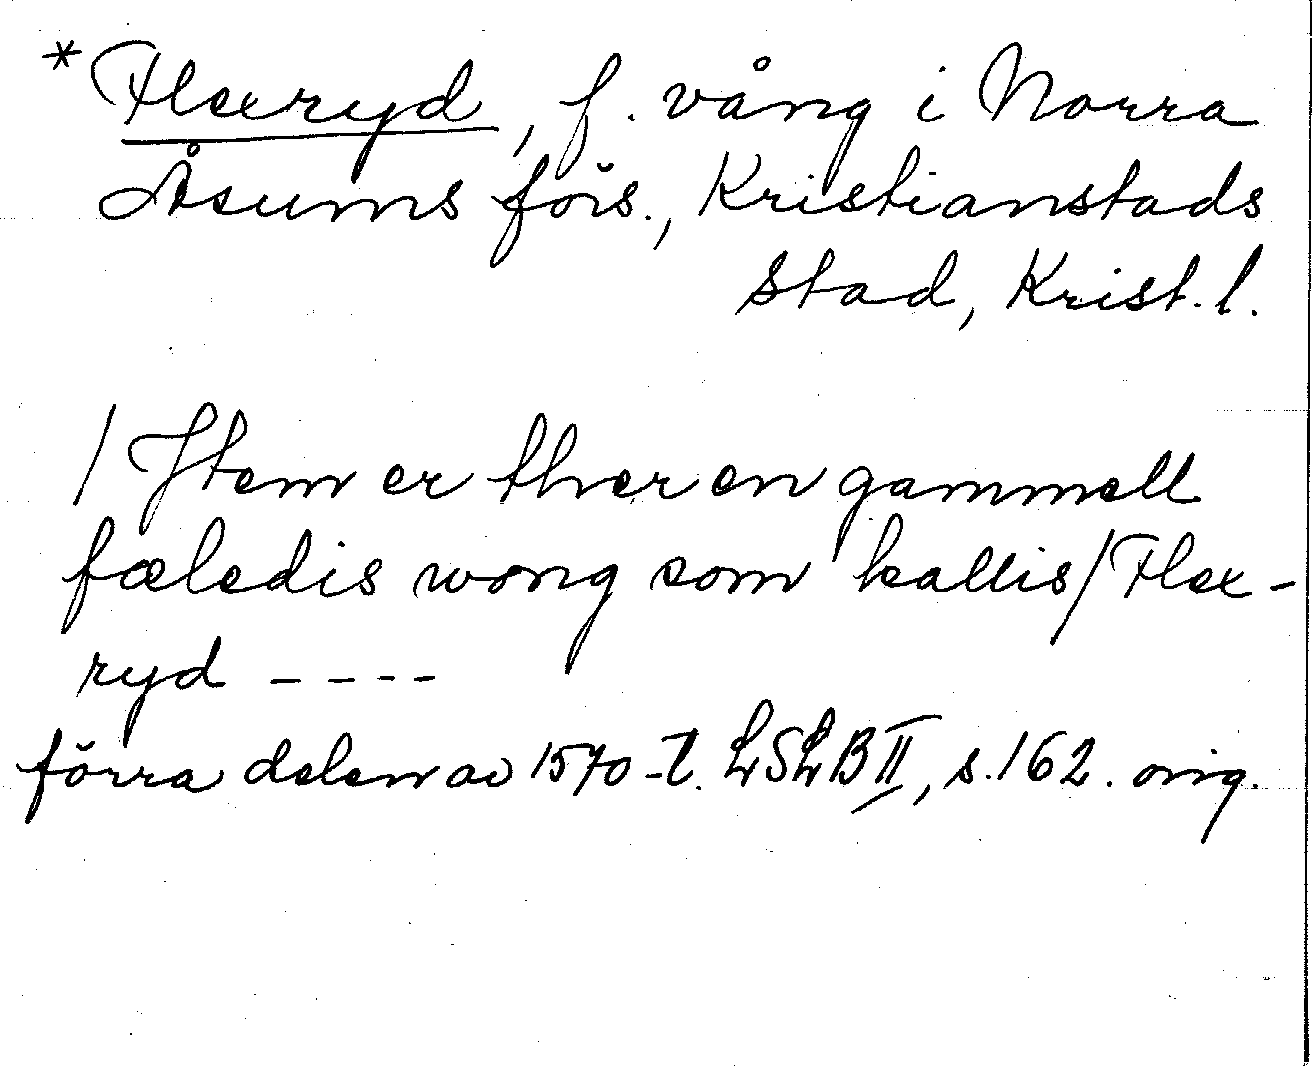 * Flexryd, f. vång i Norra
Åsums förs., Kristianstads
stad, Krist. l.
/ Item er ther en gammell
fæledis wong som kallis / Flex-
ryd ----
förra delen av 1570-t. LSLB II, s. 162. orig.